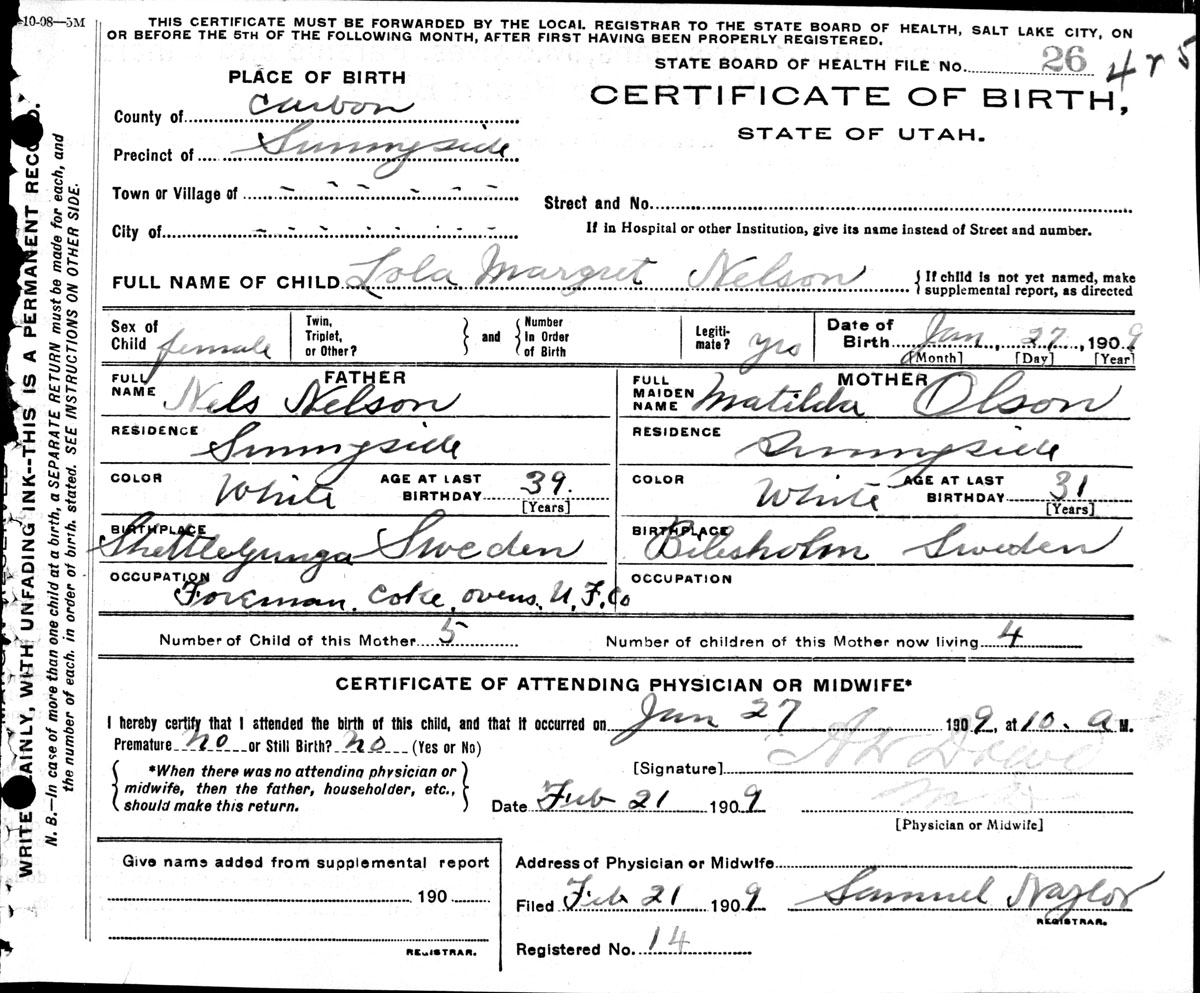 -10-08—5M
THIS CERTIFICATE MUST BE FORWARDED BY THE LOCAL REGISTRAR TO THE STATE BOARD OF HEALTH, SALT LAKE CITY, ON
OR BEFORE THE 5TH OF THE FOLLOWING MONTH, AFTER FIRST HAVING BEEN PROPERLY REGISTERED.
STATE BOARD OF HEALTH FILE No. 26 4 r 5
PLACE OF BIRTH
CERTIFICATE OF BIRTH,
STATE OF UTAH.
County of Carbon
Precinct of Sunnyside
Town or Village of
Street and No.
City of
If in Hospital or other Institution, give its name instead of Street and number.
FULL NAME OF CHILD Lola Margret Nelson { If child is not yet named, make
supplemental report, as directed
Sex of Child female
Twin, Triplet, or Other? } and { Number In Order of Birth
Legiti- mate? yes
Date of Birth Jan, 27, 1909
[Month] [Day] [Year]
FATHER
FULL NAME Nels Nelson
MOTHER
FULL MAIDEN NAME Matilda Olson
RESIDENCE Sunnyside
RESIDENCE Sunnyside
COLOR White AGE AT LAST BIRTHDAY 39. [Years]
COLOR White AGE AT LAST BIRTHDAY 31 [Years]
BIRTHPLACE Sweden
BIRTHPLACE Bilesholm Sweden
OCCUPATION Foreman, Coke, ovens, U. F. Co
OCCUPATION
Number of Child of this Mother 5
Number of children of this Mother now living 4
CERTIFICATE OF ATTENDING PHYSICIAN OR MIDWIFE*
I hereby certify that I attended the birth of this child, and that it occurred on Jan 27 1909, at 10. a M.
Premature no or Still Birth? no (Yes or No)
[Signature]
{ *When there was no attending physician or
midwife, then the father, householder, etc.,
should make this return. }
Date Feb 21 1909
[Physician or Midwife]
Give name added from supplemental report
190
REGISTRAR.
Address of Physician or Midwife
Filed Feb 21 1909 Samuel Naylor
REGISTRAR.
Registered No. 14
WRITE PLAINLY, WITH UNFADING INK--THIS IS A PERMANENT RECORD.
N. B.—In case of more than one child at a birth, a SEPARATE RETURN must be made for each, and
the number of each, in order of birth, stated. SEE INSTRUCTIONS ON OTHER SIDE.